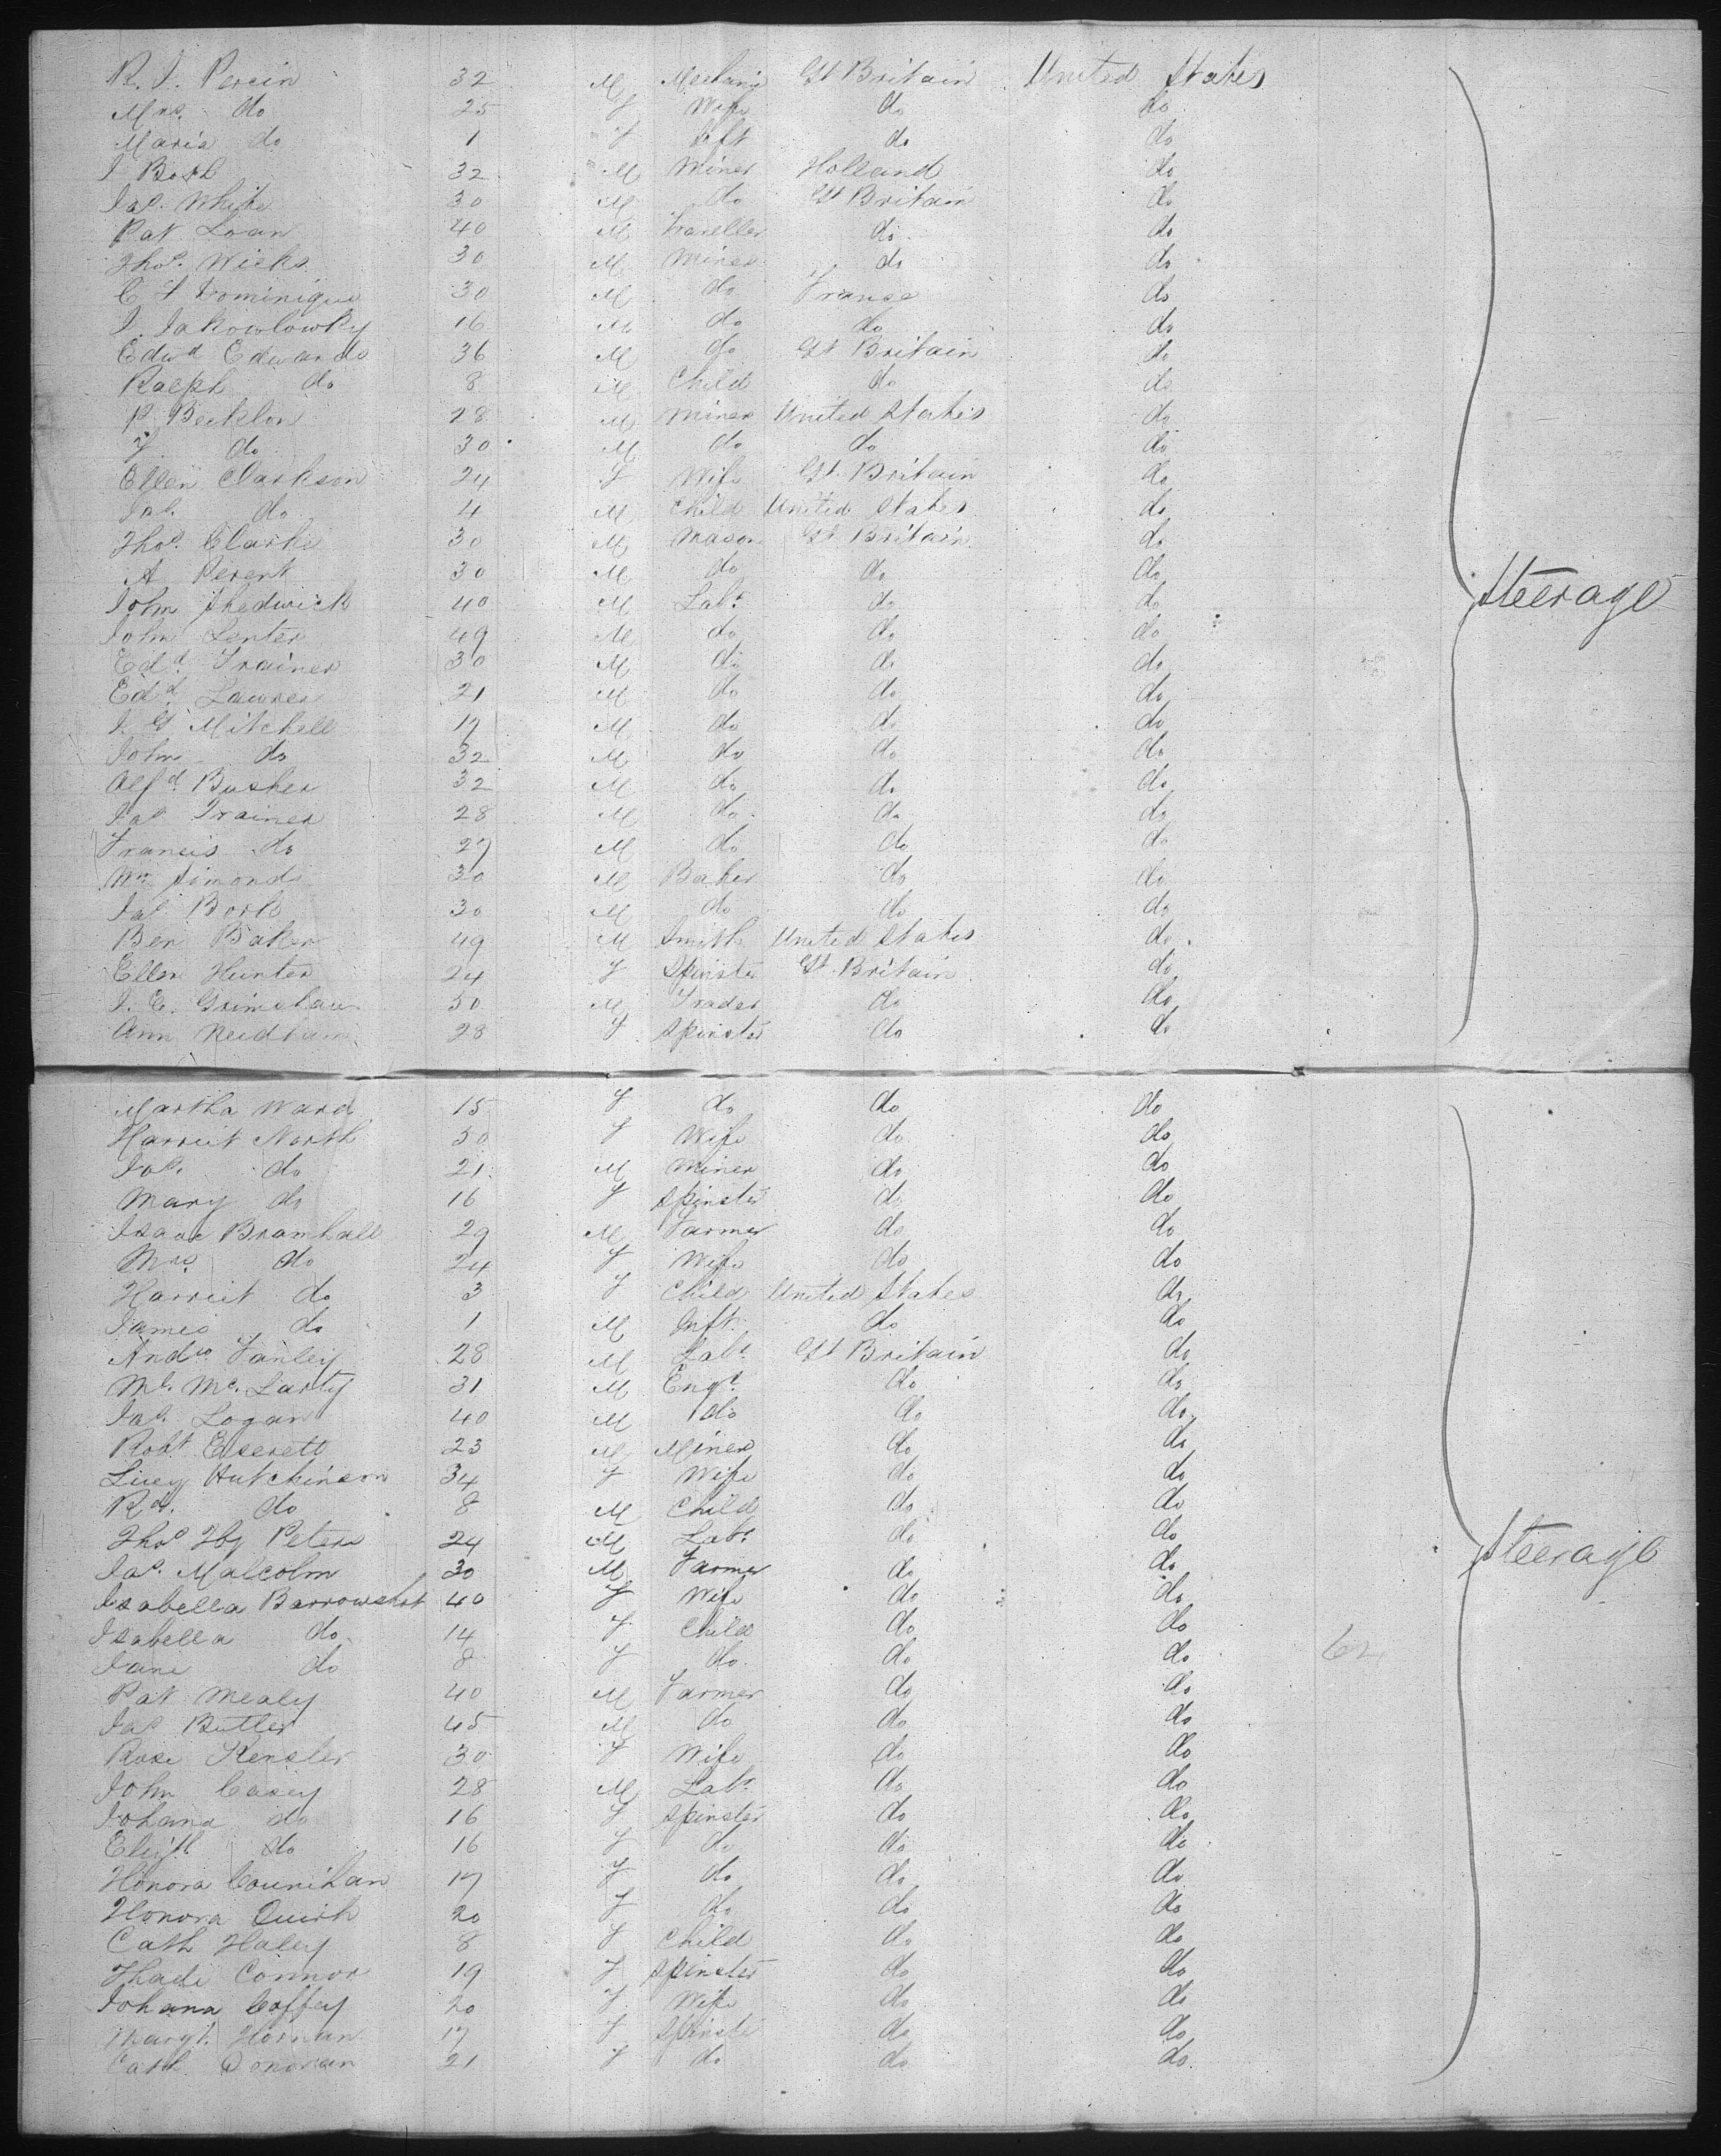 R. J. Percin 32 M Mechanic Gt Britain United States
Mrs. do 25 F Wife do do
Maria do 1 F Inft do do
J 32 M Miner Holland do
Jas. White 30 M do Gt Britain do
Pat Loan 40 M Traveller do do
Thos. Wicks 30 M Miner do do
C F Dominique 30 M do France do
J. Jakowlowky 16 M do do do
Edwd Edwards 36 M do Gt Britain do
Ralph do 8 M Child do do
P. Beeklon 28 M Miner United States do
F. do 30 M do do do
Ellen Clarkson 24 F Wife Gt. Britain do
Jas. do 4 M Child United States do
Thos. Clarke 30 M Mason Gt Britain do
A Perent 30 M do do do
John Shedwick 40 M Labr. do do Steerage
John Lenter 49 M do do do
Edd. Trainer 30 M do do do
Edd. Lawrer 21 M do do do
J. G Mitchell 17 M do do do
John do 32 M do do do
Alfd Busher 32 M do do do
Jas Trainer 28 M do do do
Francis do 27 M do do do
Wm Simonds 30 M Baker do do
Jas. 30 M do do do
Ben Baker 49 M Smith United States do
Ellen Hunter 24 F Spinster Gt. Britain do
J. E. Grimshaw 50 M Trader do do
Ann Neidham 28 F Spinster do do
Martha Ward 15 F do do do
Harriet North 50 F Wife do do
Jos. do 21 M Miner do do
Mary do 16 F Spinster do do
Isaac Bramhall 29 M Farmer do do
Mrs. do 24 F Wife do do
Harriet do 3 F Child United States do
James do 1 M Inft. do do
Andw Fanley 28 M Labr Gt Britain do
Ml. Mc. Larty 31 M Engr. do do
Jas. Logan 40 M do do do
Robt. Everett 23 M Miner do do
Lucy Hutchinson 34 F Wife do do
Rd. do 8 M Child do do
Thos Hy Peters 24 M Labr do do Steerage
Jas. Malcolm 30 M Farmer do do
Isabella Barrowshot 40 F Wife do do
Isabella do 14 F Child do do
Jane do 8 F do do do 62
Pat Mealy 40 M Farmer do do
Jas Butler 45 M do do do
Rose Kensler 30 F Wife do do
John Casey 28 M Labr. do do
Johana do 16 F Spinster do do
Elizth do 16 F do do do
Honora Counihan 17 F do do do
Honora Quirk 20 F do do do
Cath Haley 8 F Child do do
Thade Connor 19 F Spinster do do
Johana Coffey 20 F Wife do do
Margt. Hornan 17 F Spinster do do
Cath Donovan 21 F do do do